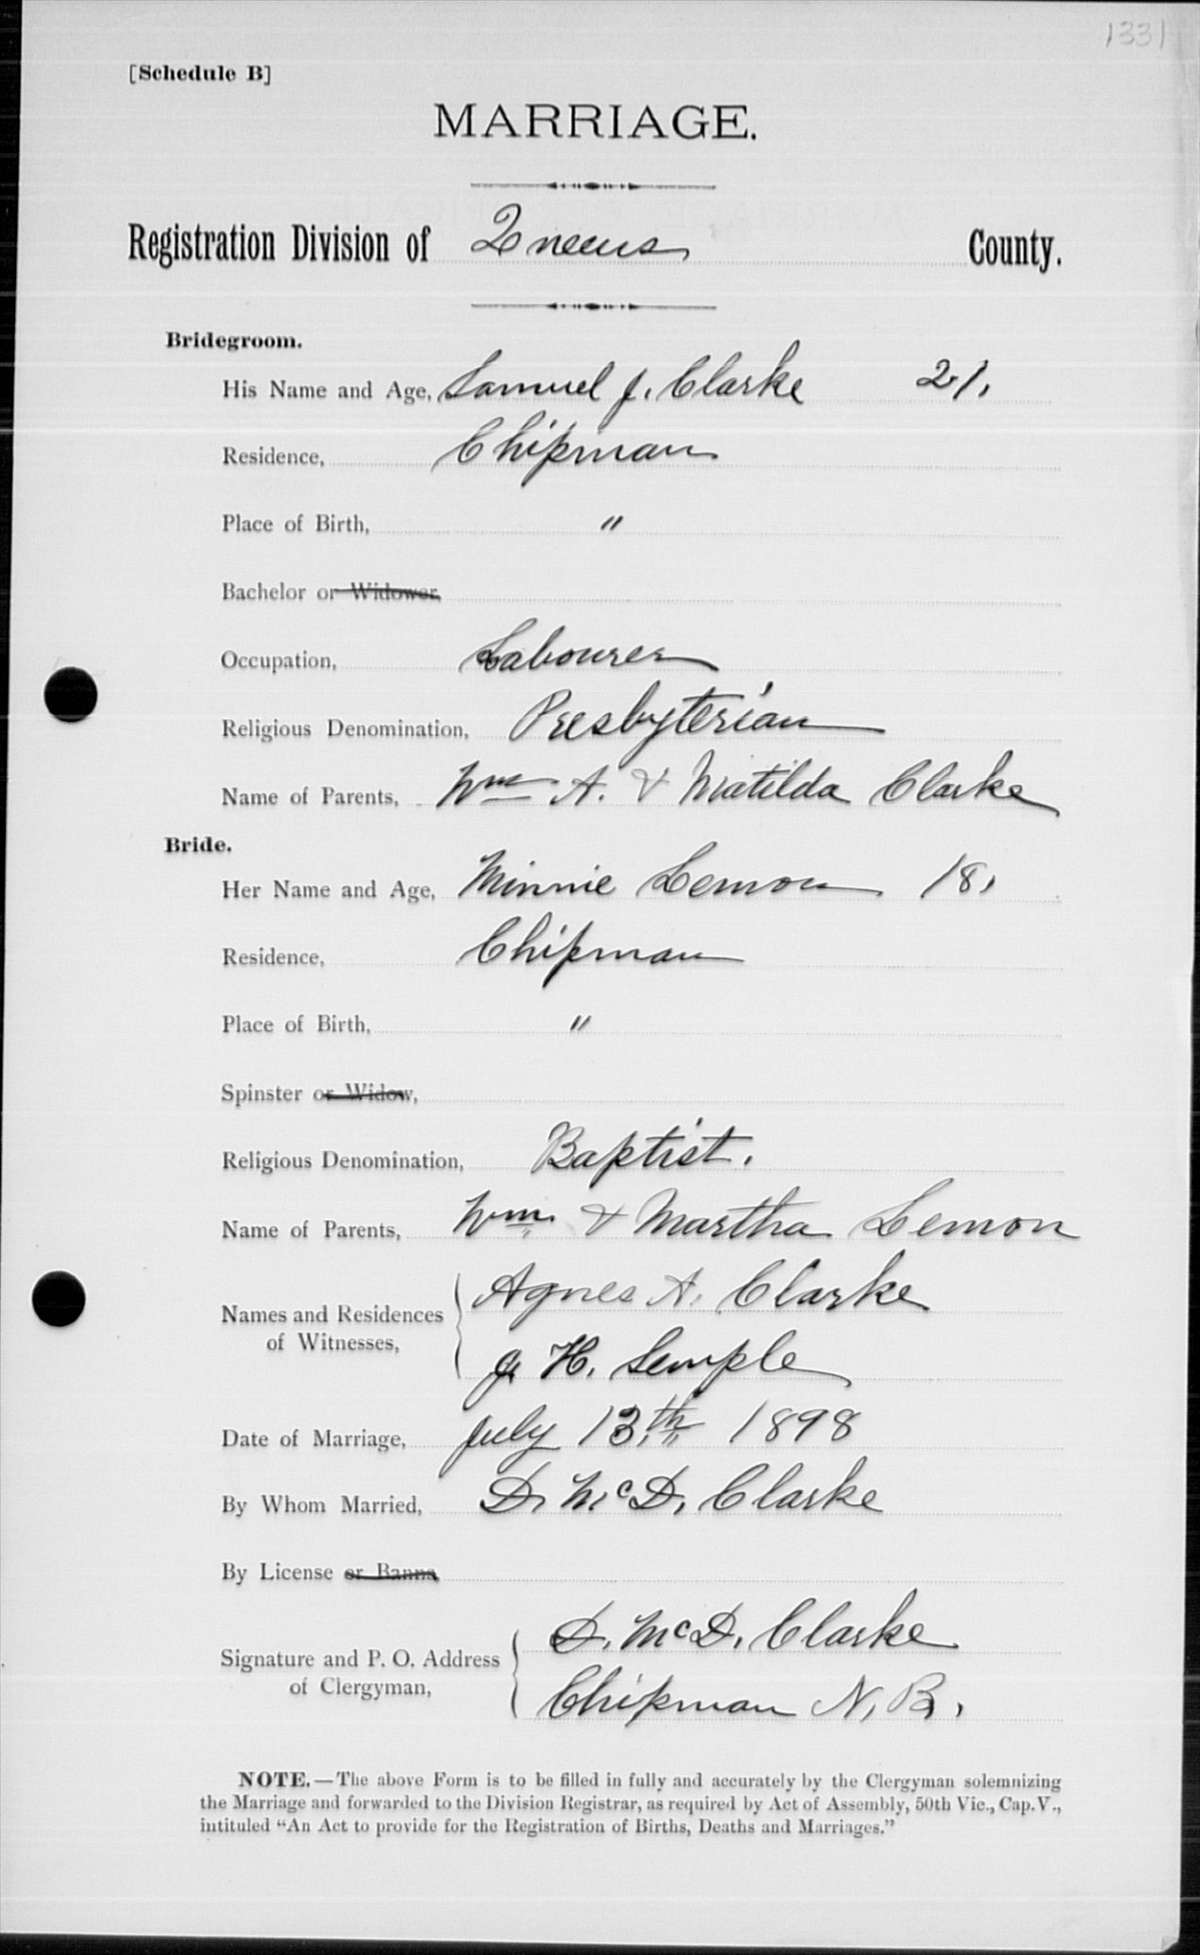 1331
[Schedule B]
MARRIAGE.
Registration Division of Queens County.
Bridegroom.
His Name and Age, Samuel J. Clarke 21.
Residence, Chipman
Place of Birth, "
Bachelor or Widower,
Occupation, Labourer
Religious Denomination, Presbyterian
Name of Parents, Wm A. & Matilda Clarke
Bride.
Her Name and Age, Minnie Lemon 18.
Residence, Chipman
Place of Birth, "
Spinster or Widow,
Religious Denomination, Baptist.
Name of Parents, Wm. & Martha Lemon
Names and Residences of Witnesses, Agnes A. Clarke
J. H. Semple
Date of Marriage, July 13th 1898
By Whom Married, D. McD. Clarke
By License or Banns,
Signature and P. O. Address of Clergyman, D. McD. Clarke
Chipman N. B.
NOTE.—The above Form is to be filled in fully and accurately by the Clergyman solemnizing
the Marriage and forwarded to the Division Registrar, as required by Act of Assembly, 50th Vic., Cap. V.,
intituled "An Act to provide for the Registration of Births, Deaths and Marriages."